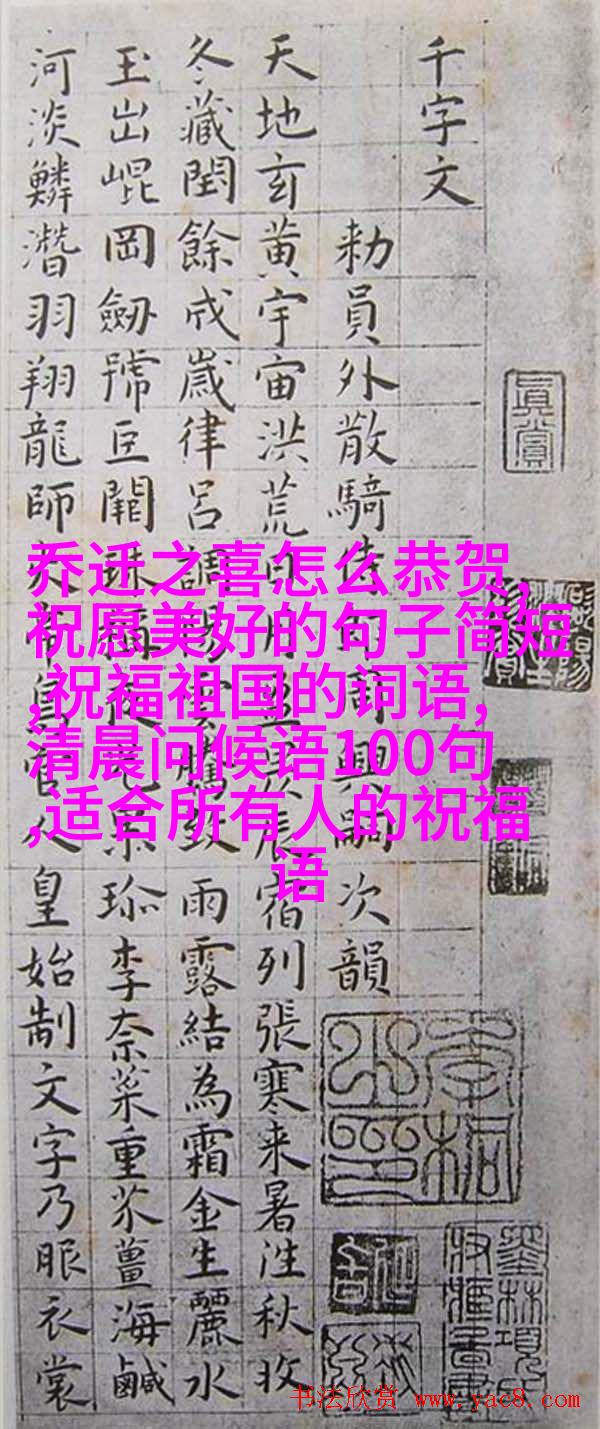 千字文
勑員外散騎侍郎周興嗣次韻
天地玄黄宇宙洪荒日月盈昃辰宿列張寒来暑往秋收
冬藏閏餘成歲律吕調陽雲騰致雨露結為霜金生麗水
玉出崐岡劒號巨闕珠稱夜光菓珎李柰菜重芥薑海鹹
河淡鱗潛羽翔龍師火帝鳥官人皇始制文字乃服衣裳
真賞
乔迁之喜怎么恭贺,
祝愿美好的句子简短
,祝福祖国的词语,
清晨问候语100句
,适合所有人的祝福
语
书法欣赏 www.yac8.com